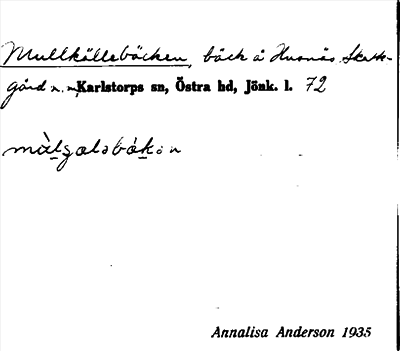 Mullkällebäcken, bäck å Husnäs Skatte-
gård n. m., Karlstorps sn, Östra hd, Jönk. l. 72
Annalisa Anderson 1935